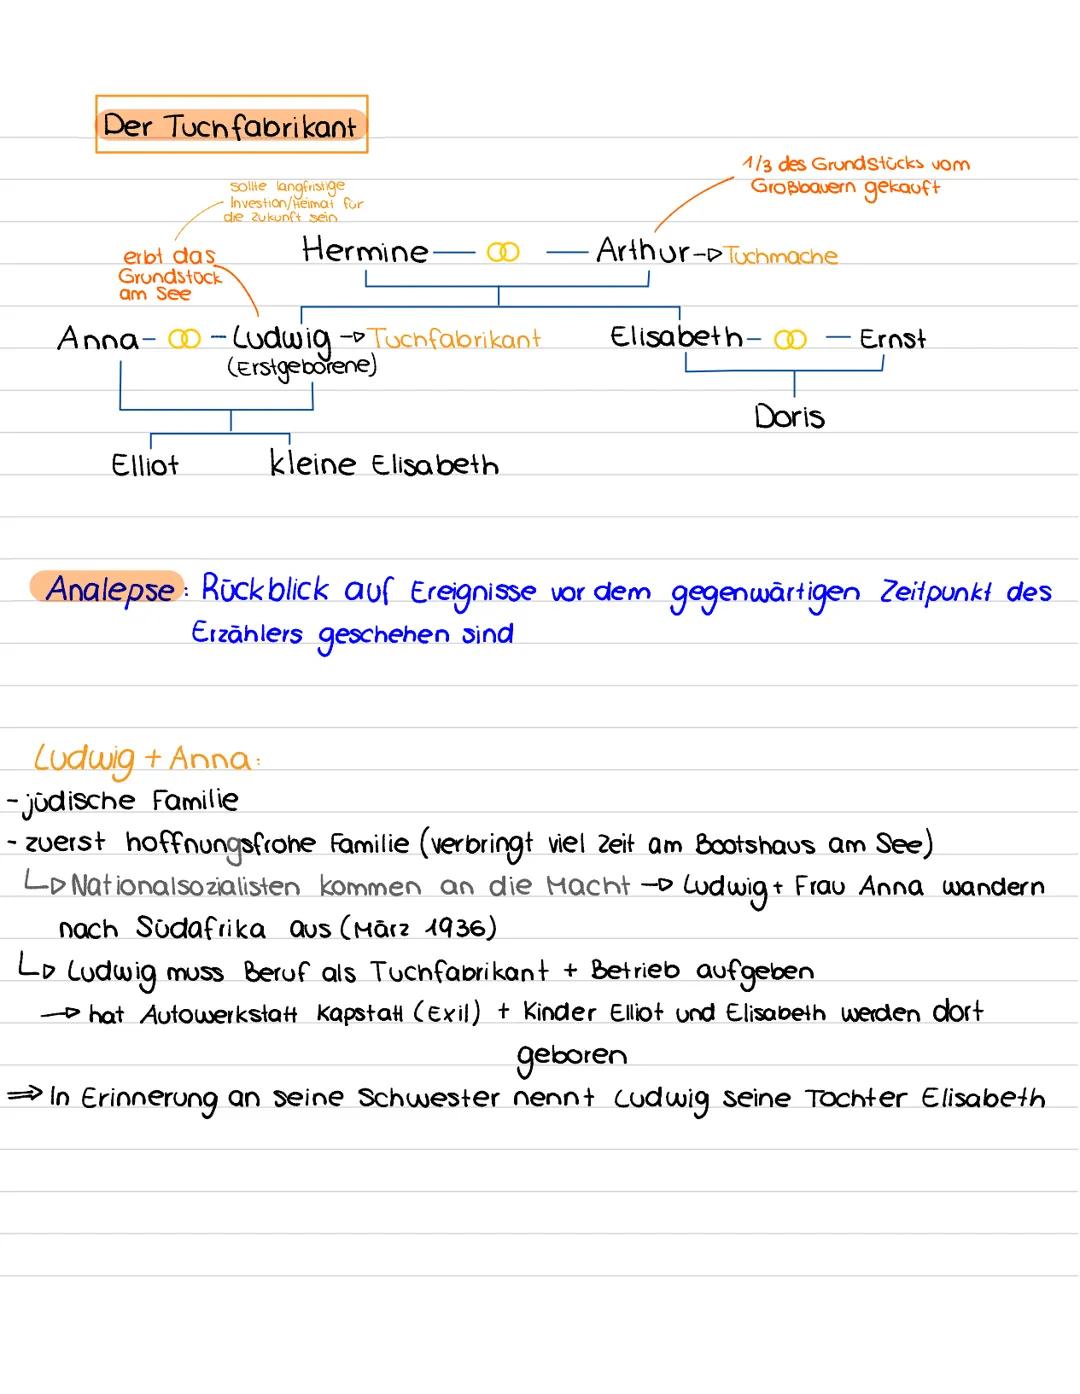 Der Tuchfabrikant
1/3 des Grundstücks vom
Großbauern gekauft
sollte langfristige
Investion/Heimat für
die Zukunft sein
erbt das
Grundstück
am See
Hermine — — Arthur → Tuchmache
Anna - - Ludwig → Tuchfabrikant
(Erstgeborene)
Elisabeth - — Ernst
Doris
Elliot kleine Elisabeth
Analepse: Rückblick auf Ereignisse vor dem gegenwärtigen Zeitpunkt des
Erzählers geschehen sind
Ludwig + Anna:
- jüdische Familie
- zuerst hoffnungsfrohe Familie (verbringt viel Zeit am Bootshaus am See)
↳ Nationalsozialisten kommen an die Macht → Ludwig + Frau Anna wandern
nach Südafrika aus (März 1936)
↳ Ludwig muss Beruf als Tuchfabrikant + Betrieb aufgeben
→ hat Autowerkstatt Kapstatt (Exil) + Kinder Elliot und Elisabeth werden dort
geboren
⇒ In Erinnerung an seine Schwester nennt Ludwig seine Tochter Elisabeth